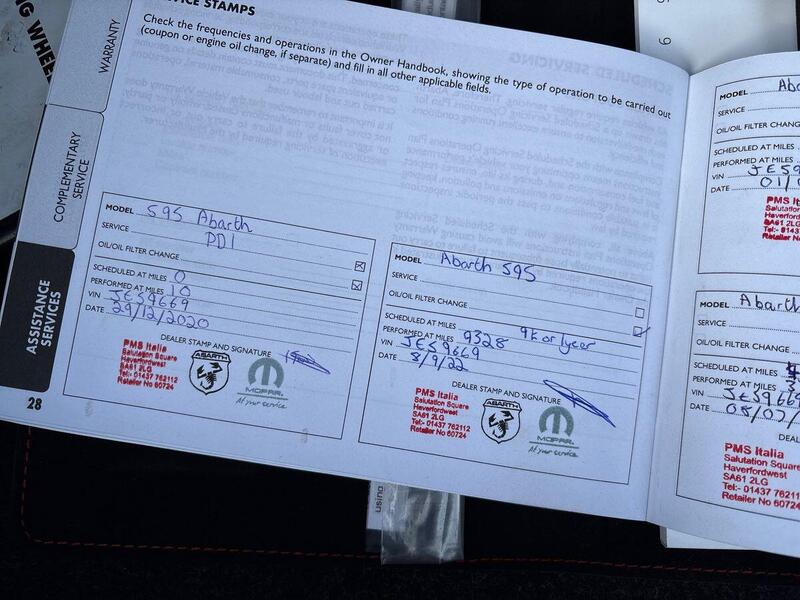 VICE STAMPS
Check the frequencies and operations in the Owner Handbook, showing the type of operation to be carried out
(coupon or engine oil change, if separate) and fill in all other applicable fields.
NG WHEEL
WARRANTY
COMPLEMENTARY
SERVICE
ASSISTANCE
SERVICES
28
MODEL 595 Abarth
SERVICE PDI
OIL/OIL FILTER CHANGE
SCHEDULED AT MILES 0
PERFORMED AT MILES 10
VIN JES9669
DATE 29/12/2020
DEALER STAMP AND SIGNATURE
PMS Italia
Salutation Square
Haverfordwest
SA61 2LG
Tel:- 01437 762112
Retailer No 60724
ABARTH
MOPAR
At your service
MODEL Abarth 595
SERVICE
OIL/OIL FILTER CHANGE
SCHEDULED AT MILES 9k or 1year
PERFORMED AT MILES 9328
VIN JES9669
DATE 8/9/22
DEALER STAMP AND SIGNATURE
PMS Italia
Salutation Square
Haverfordwest
SA61 2LG
Tel:- 01437 762112
Retailer No 60724
ABARTH
MOPAR
At your service
MODEL Ab
SERVICE
OIL/OIL FILTER CHANGE
SCHEDULED AT MILES
PERFORMED AT MILES
VIN JES9
DATE 01/
PMS Ital
Salutation
Haverfordw
SA61 2LG
Tel:- 01437
Retailer N
MODEL Abarth
SERVICE
OIL/OIL FILTER CHANGE
SCHEDULED AT MILES
PERFORMED AT MILES 3
VIN JES9669
DATE 05/07/
DEA
PMS Italia
Salutation Square
Haverfordwest
SA61 2LG
Tel:- 01437 762
Retailer No 607